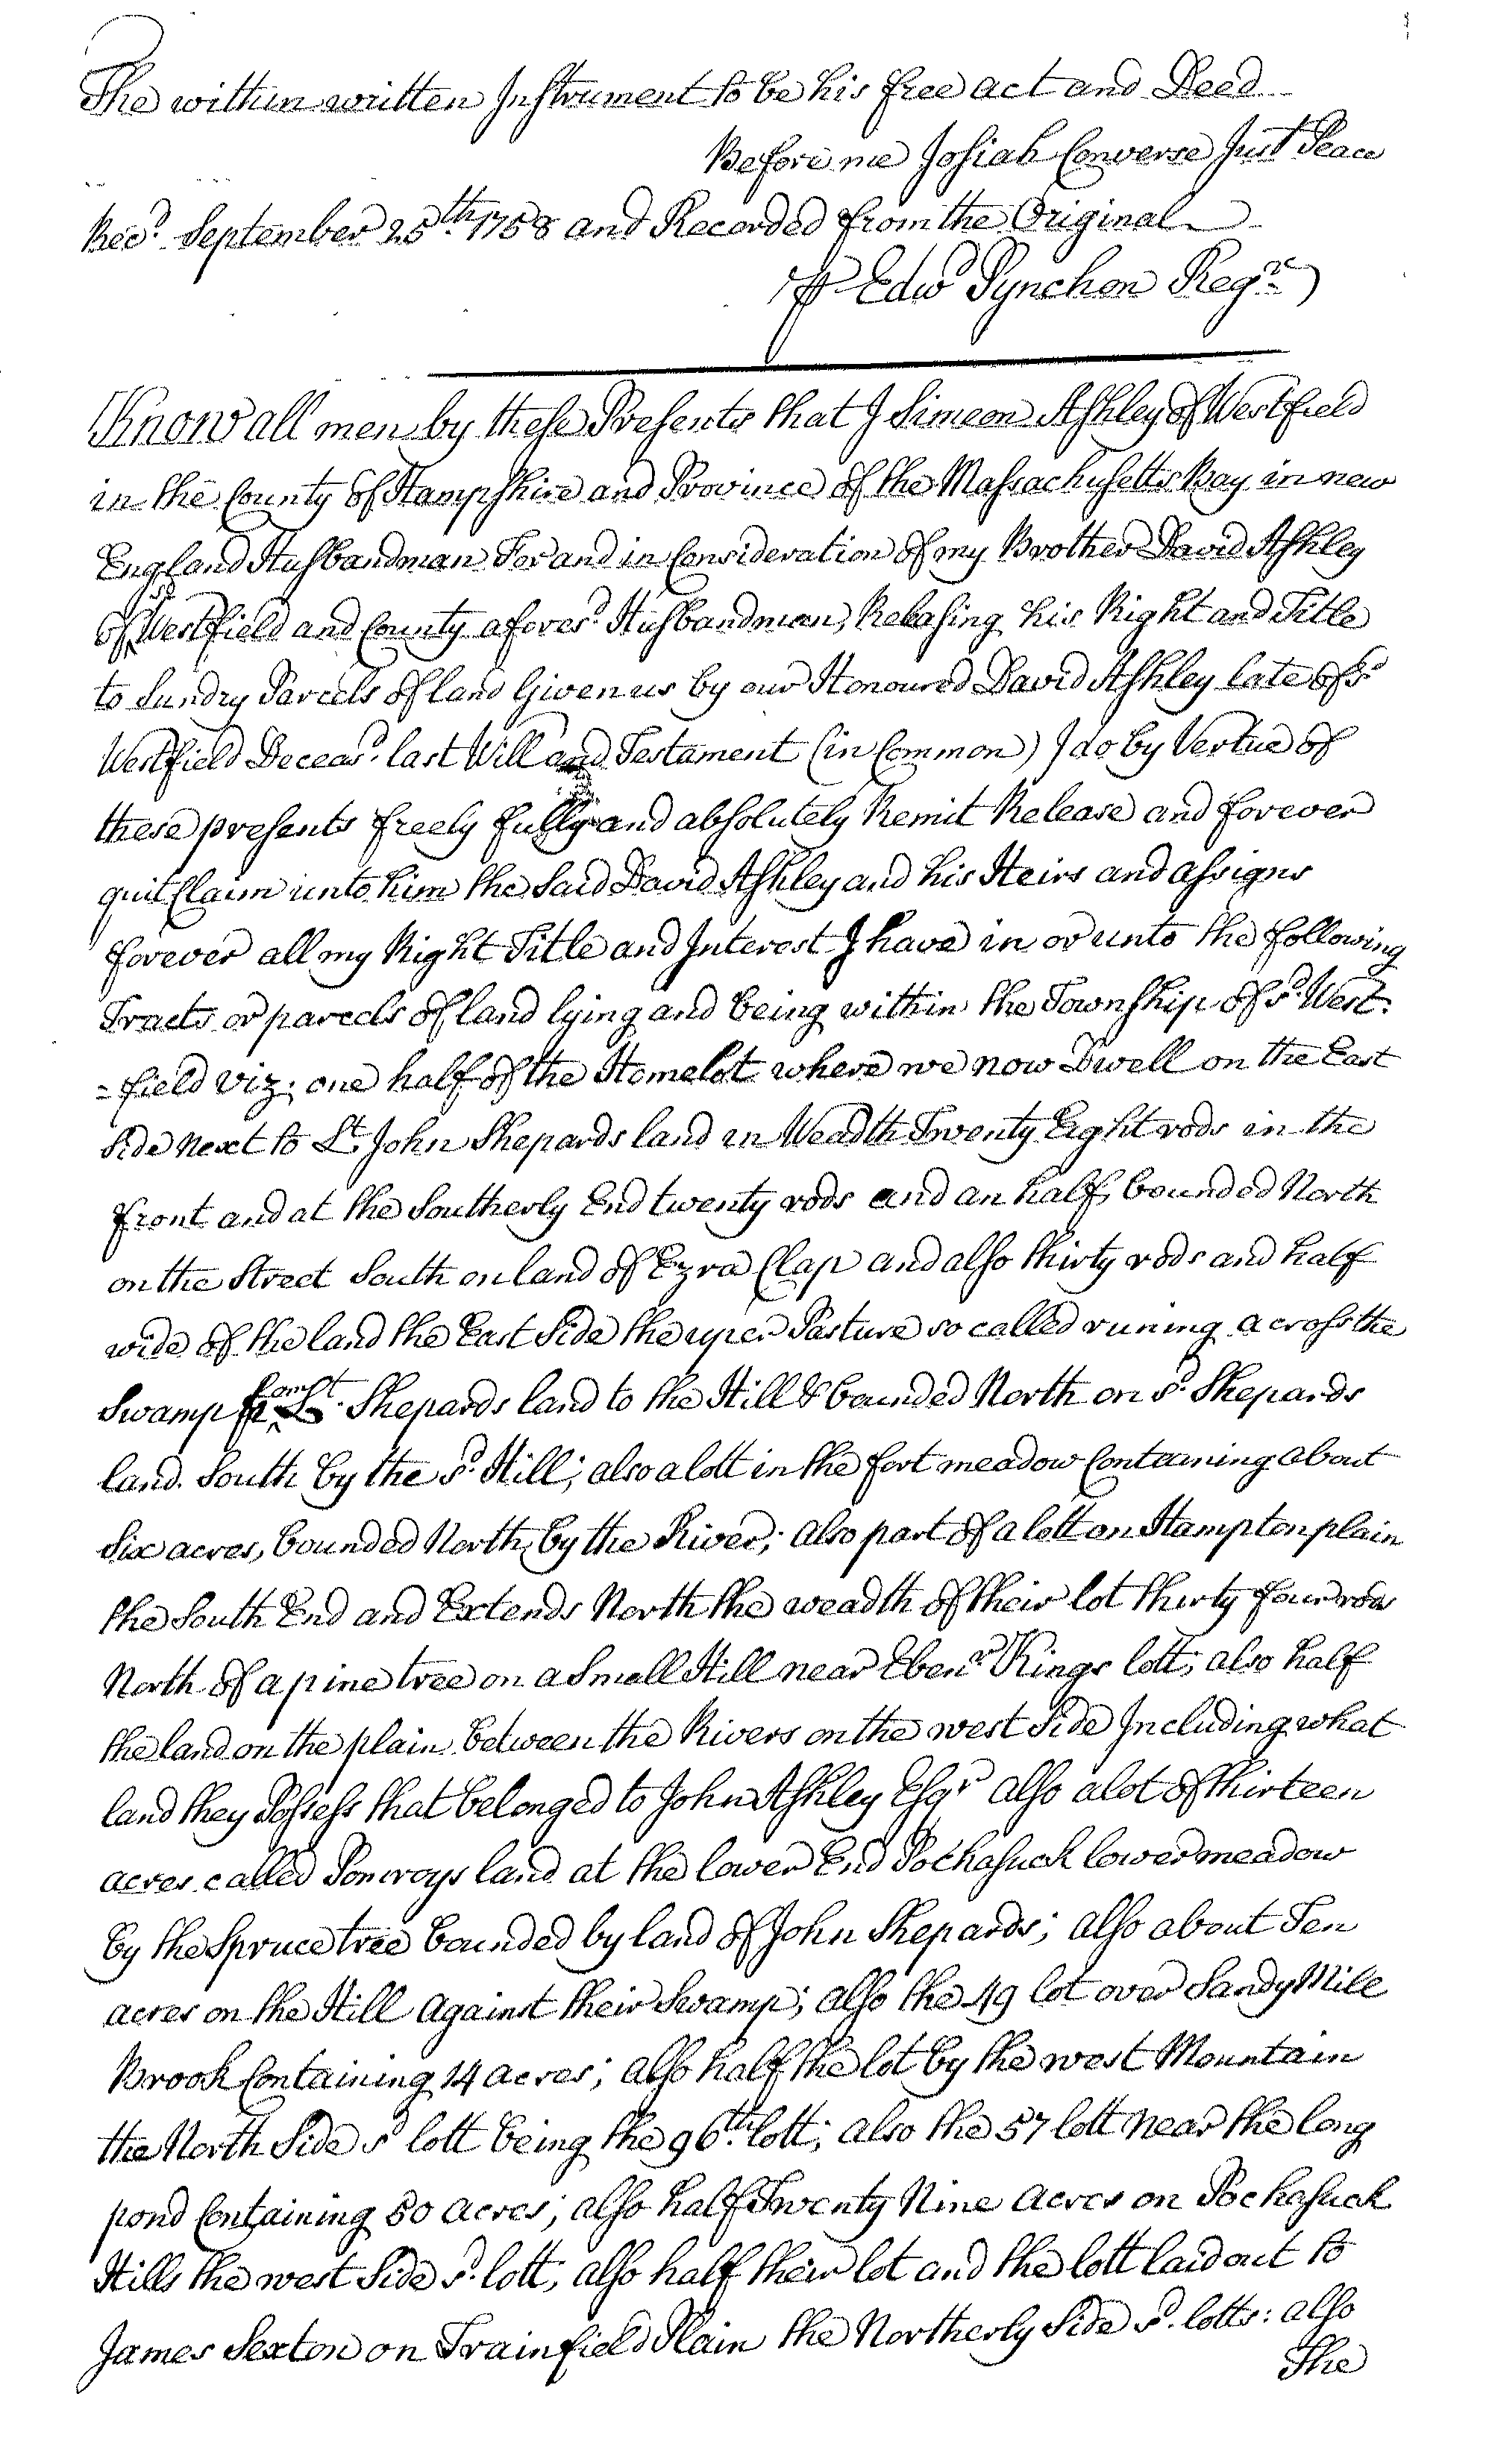 The within written Instrument to be his free act and Deed
Before me Josiah Converse Just Peace
Recd. September 25th. 1758 and Recorded from the Original
Edwd Pynchon Regr
Know all men by these Presents that I Simeon Ashley of Westfield
in the County of Hampshire and Province of the Massachusetts Bay in new
England Husbandman For and in Consideration of my Brother David Ashley
of Westfield and County afores.d Husbandman, Relasing his Right and Title
to Sundry Parcels of land Given us by our Honoured David Ashley late of sd.
Westfield Deceasd. last Will and Testament (in Common) I do by Vertue of
these presents freely fully and absolutely Remit Release and forever
quit Claim unto him the Said David Ashley and his Heirs and assigns
forever all my Right Title and Interest I have in or unto the following
Tracts or parcels of land lying and being within the Township of sd. West-
-field viz; one half of the Homelot where we now Dwell on the East
Side next to Lt. John Shepards land in Weadth Twenty Eight rods in the
front and at the Southerly End twenty rods and an half, bounded North
on the Street South on land of Ezra Clap and also thirty rods and half
wide of the land the East Side the uper Pasture so called runing across the
Swamp from Lt. Shepards land to the Hill & bounded North on sd. Shepards
land. South by the sd. Hill; also a lott in the fort meadow Containing about
Six acres, bounded North, by the River; also part of a lott on Hampton plain
the South End and Extends North the weadth of their lot thirty four rods
North of a pine tree on a Small Hill near Ebenr. Kings lott; also half
the land on the plain between the Rivers on the west Side Including what
land they Possess that belonged to John Ashley Esqr also a lot of thirteen
acres called Pomroys land at the lower End Pochasuck lower meadow
by the Spruce tree bounded by land of John Shepards; also about Ten
acres on the Hill against their Swamp; also the 49 lot over Sandy Mill
Brook Containing 14 acres; also half the lot by the west Mountain
the North Side sd lott being the 96th. lott; also the 57 lott near the long
pond Containing 80 acres; also half Twenty Nine acres on Pochasuck
Hills the west Side sd. lott, also half their lot and the lott laid out to
James Sexton on Trainfield Plain the Northerly Side sd. lotts: also
The